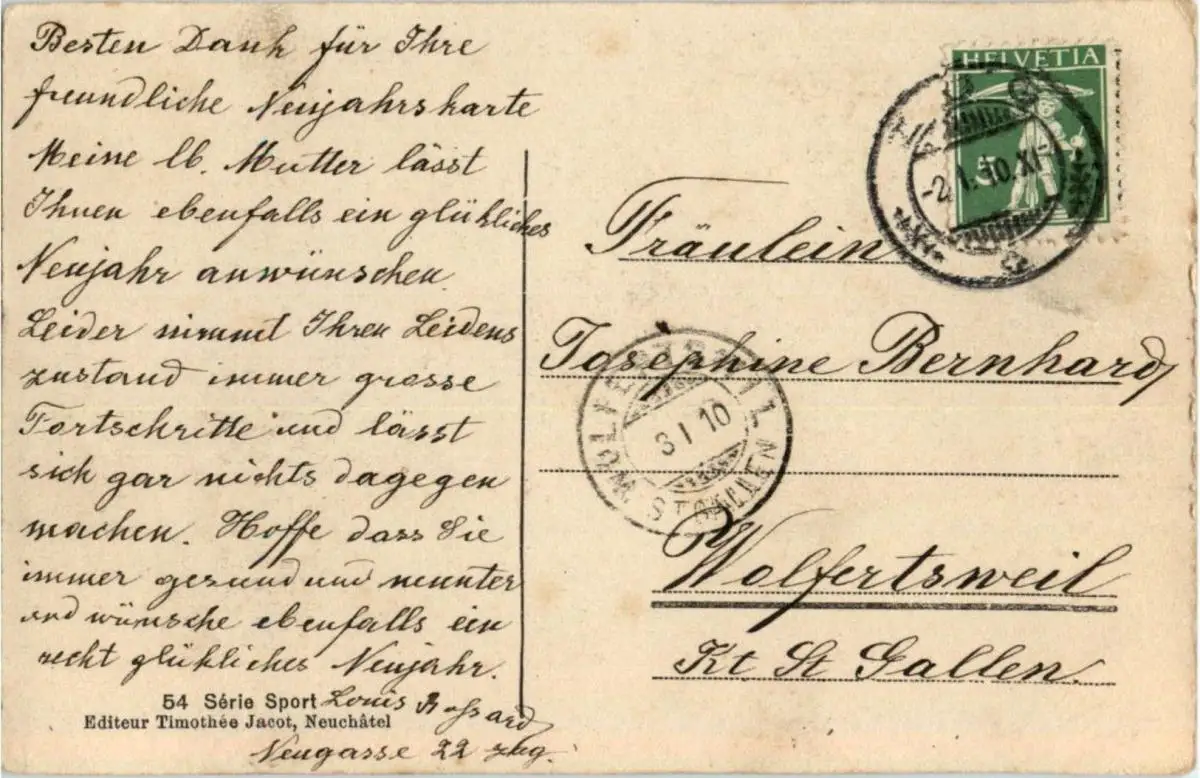 Besten Dank für Ihre
freundliche Neujahrskarte
Meine lb. Mutter lässt
Ihnen ebenfalls ein glükliches
Neujahr anwünschen.
Leider nimmt Ihren Leidens
zustand immer grosse
Fortschritte und lässt
sich gar nichts dagegen
machen. Hoffe dass Sie
immer gesund und munter
und wünsche ebenfalls ein
recht glükliches Neujahr.
Louis Bossard
Neugasse 22 Zug.
54 Série Sport
Editeur Timothée Jacot, Neuchâtel
HELVETIA
5
-2.I.10.XI-
3 I 10
(ST. GALLEN)
Fräulein
Josephine Bernhard,
Wolfertsweil
Kt St Gallen.